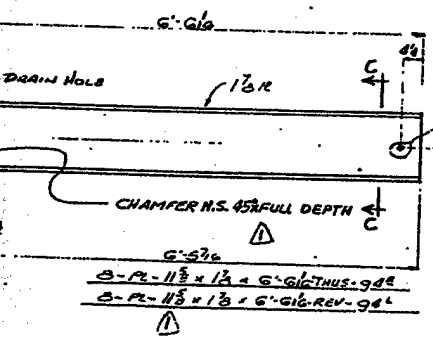 6'-6 1/16
4 1/4
C
DRAIN HOLE
1 7/8 R
CHAMFER N.S. 45° x FULL DEPTH
C
1
6'-5 7/16
8-PL-11 5/8 x 1 7/8 x 6'-6 1/16-THUS-94R
8-PL-11 5/8 x 1 7/8 x 6'-6 1/16-REV-94L
1